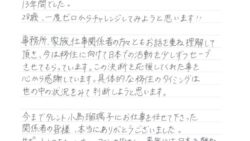 13年間でした。
29歳、一度ゼロからチャレンジしてみようと思います!!
事務所、家族、仕事関係者の方々ともお話を重ね理解して
頂き、今は移住に向けて日本での活動を少しずつセーブ
させてもらっています。この決断を応援してくれた事を
心から感謝しています。具体的な移住のタイミングは
世の中の状況をみて判断しようと思います。
今までタレント小島瑠璃子にお仕事を任せて下さった
関係者の皆様、本当にありがとうございました。